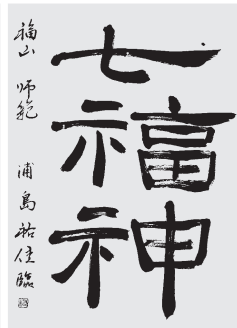 七福神
福山 師範 浦島祐佳臨